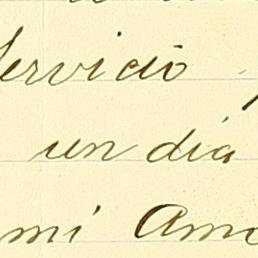 Servicio
un dia
mi Amo